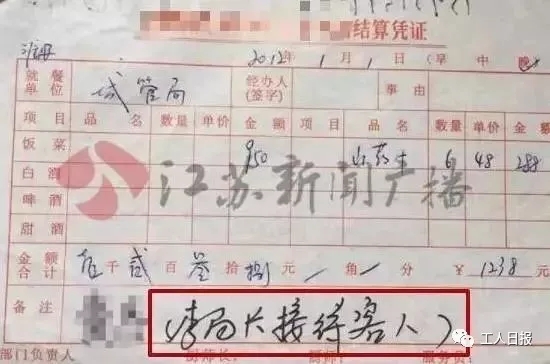 结算凭证
2012年1月1日(早 中 晚)
就餐单位 城管局 经办人(签字) 事由
项目 品名 数量 单价 金额 项目 品名 数量 单价 金额
饭菜 950 6 48 288
白酒
啤酒
甜酒
江苏新闻广播
金额合计 千贰百叁拾捌元/角/分 ¥1238元
备注 (李局长接待客人)
部门负责人 厨师长: 厨师: 服务员:
工人日报